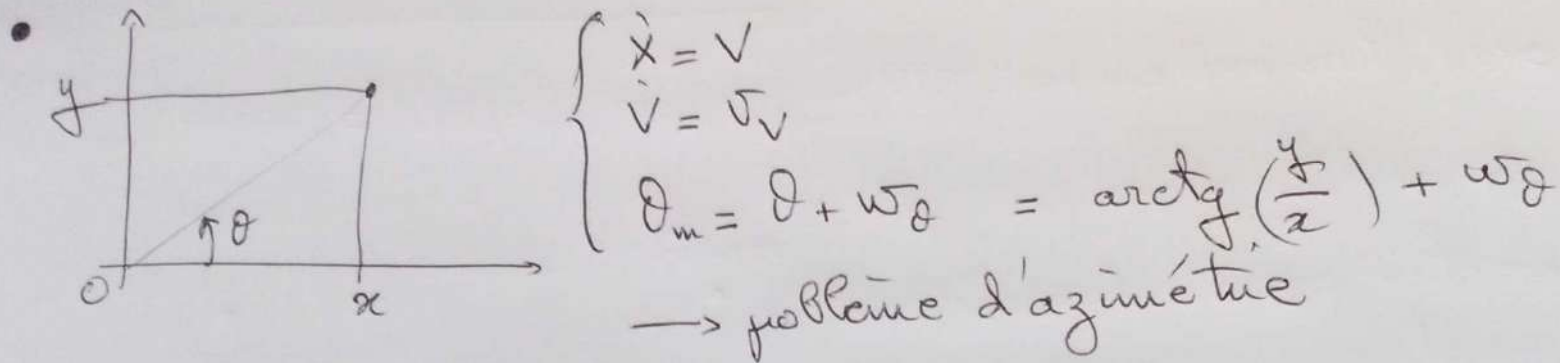 y
θ
O
x
Ẋ = V
V̇ = v_V
θ_m = θ + w_θ = arctg(y/x) + w_θ
→ problème d'azimétrie